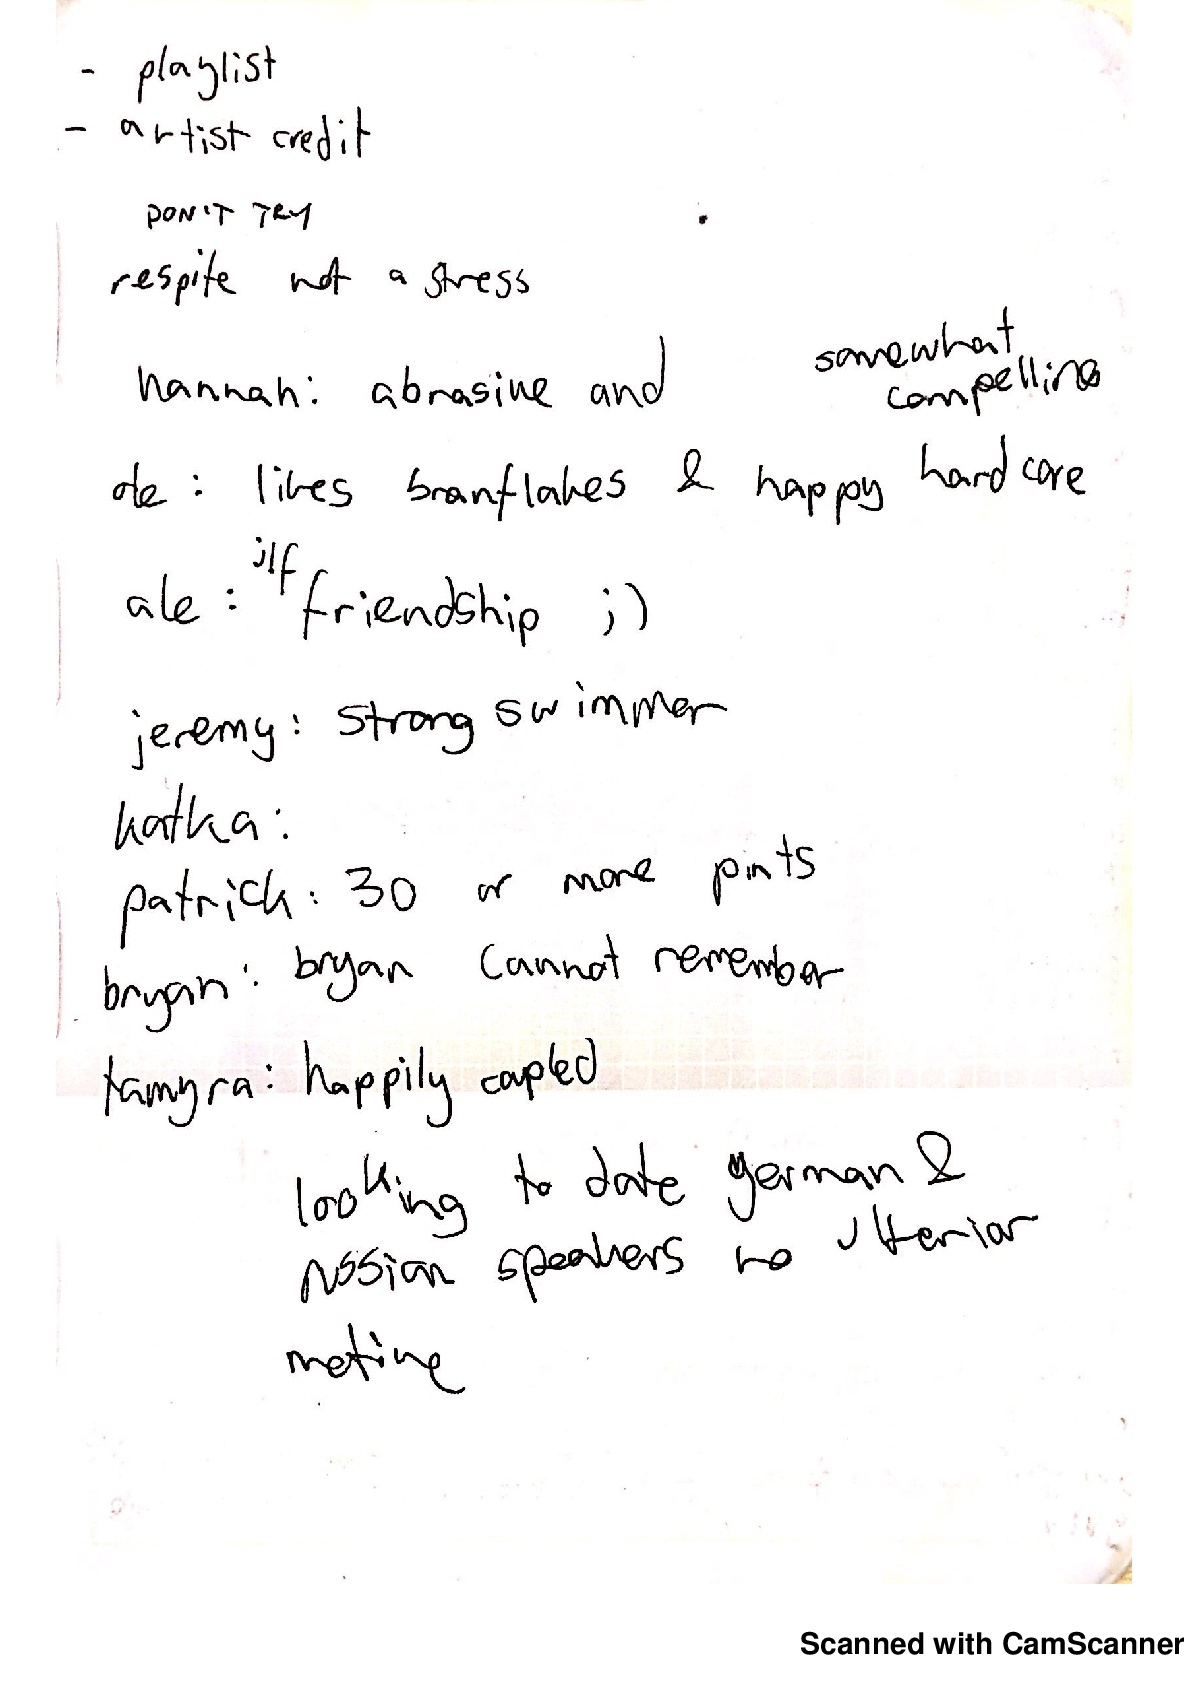 - playlist
- artist credit
DON'T TRY
respite not a stress
hannah: abrasive and somewhat compelling
de: likes branflakes & happy hardcore
ale: ilf friendship ;)
jeremy: strong swimmer
katka:
patrick: 30 or more pints
bryan: bryan cannot remember
tamyra: happily cupled
looking to date german &
russian speakers no ulterior
motive
Scanned with CamScanner